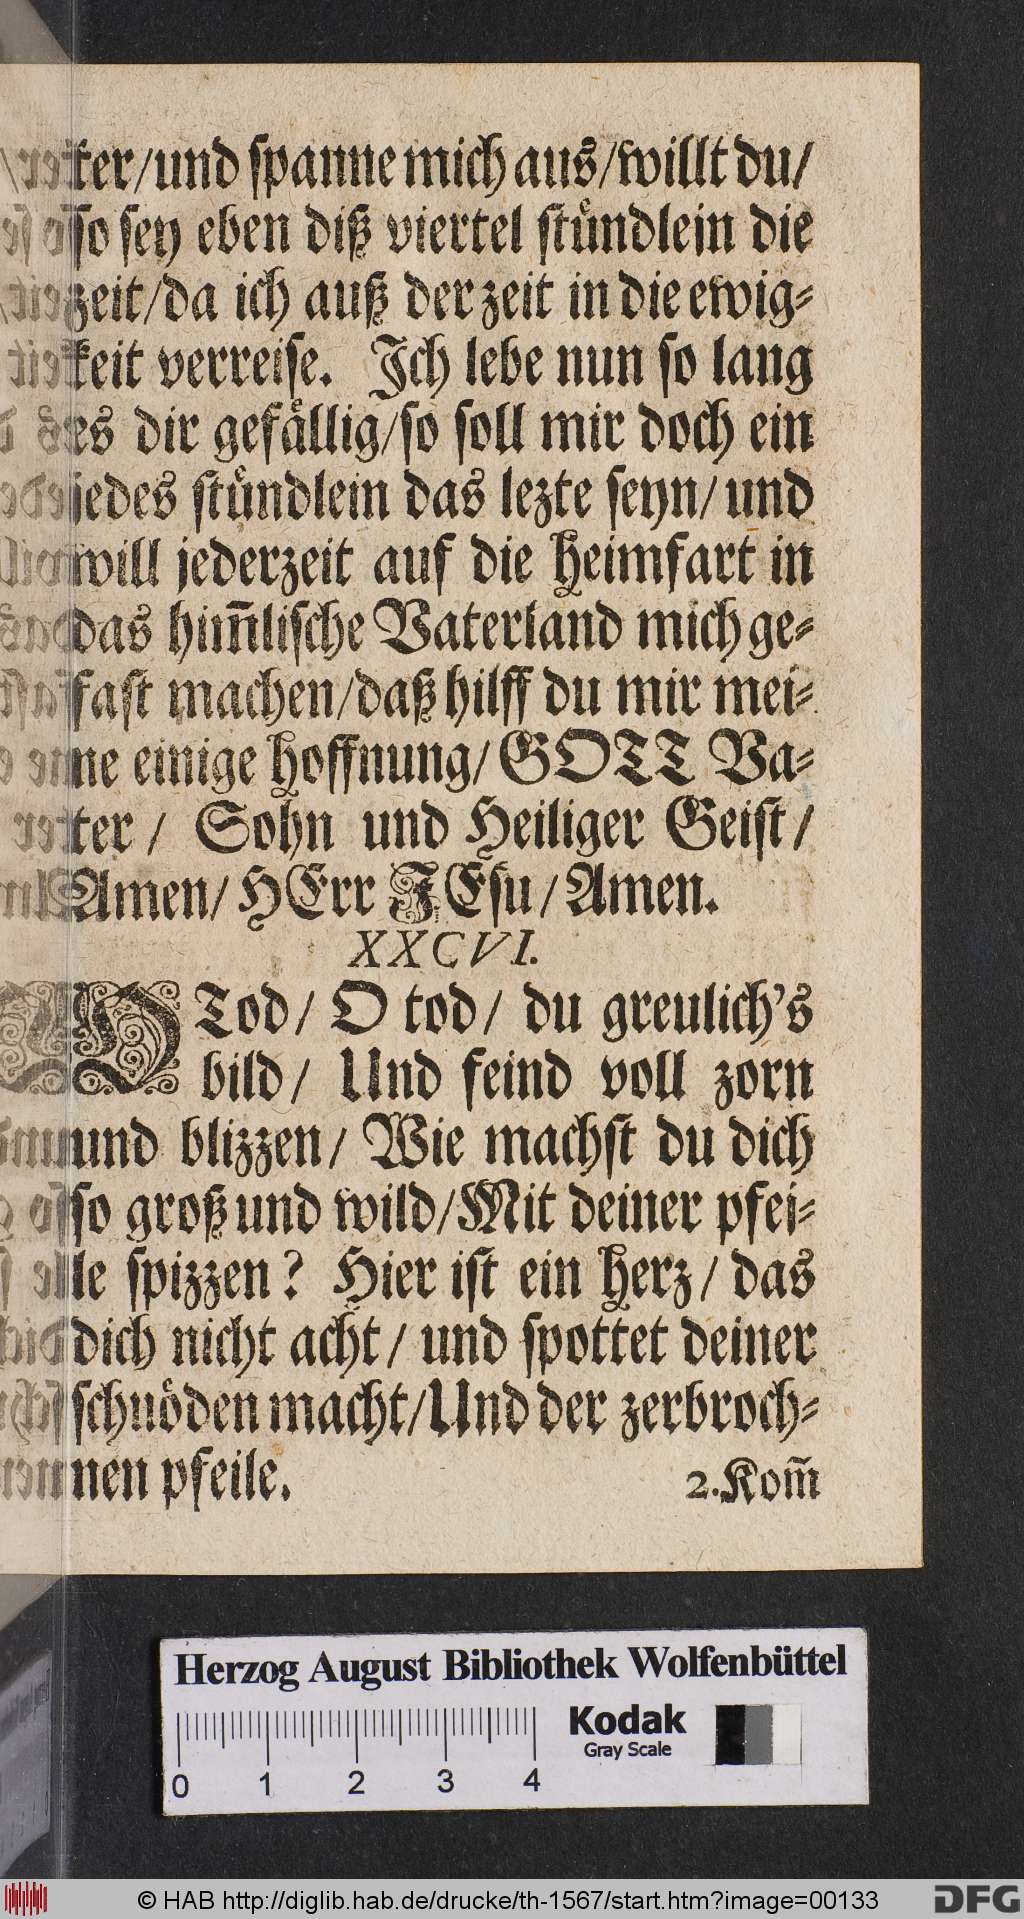 ter/und spanne mich aus/willt du/
so sey eben diß viertel stuͤndlein die
zeit/da ich auß der zeit in die ewig⸗
keit verreise. Ich lebe nun so lang
es dir gefaͤllig/so soll mir doch ein
jedes stuͤndlein das lezte seyn/und
will jederzeit auf die heimfart in
das him̃lische Vaterland mich ge⸗
fast machen/daß hilff du mir mei⸗
ne einige hoffnung/GOTT Va⸗
ter/ Sohn und Heiliger Geist/
Amen/HErr JEsu/Amen.
XXCVI.
O Tod/ O tod/ du greulich's
bild/ Und feind voll zorn
und blizzen/ Wie machst du dich
so groß und wild/Mit deiner pfei⸗
le spizzen? Hier ist ein herz/ das
dich nicht acht/ und spottet deiner
schnöden macht/Und der zerbroch⸗
nen pfeile.
2. Kom̃
Herzog August Bibliothek Wolfenbüttel
Kodak
Gray Scale
0 1 2 3 4
© HAB http://diglib.hab.de/drucke/th-1567/start.htm?image=00133
DFG